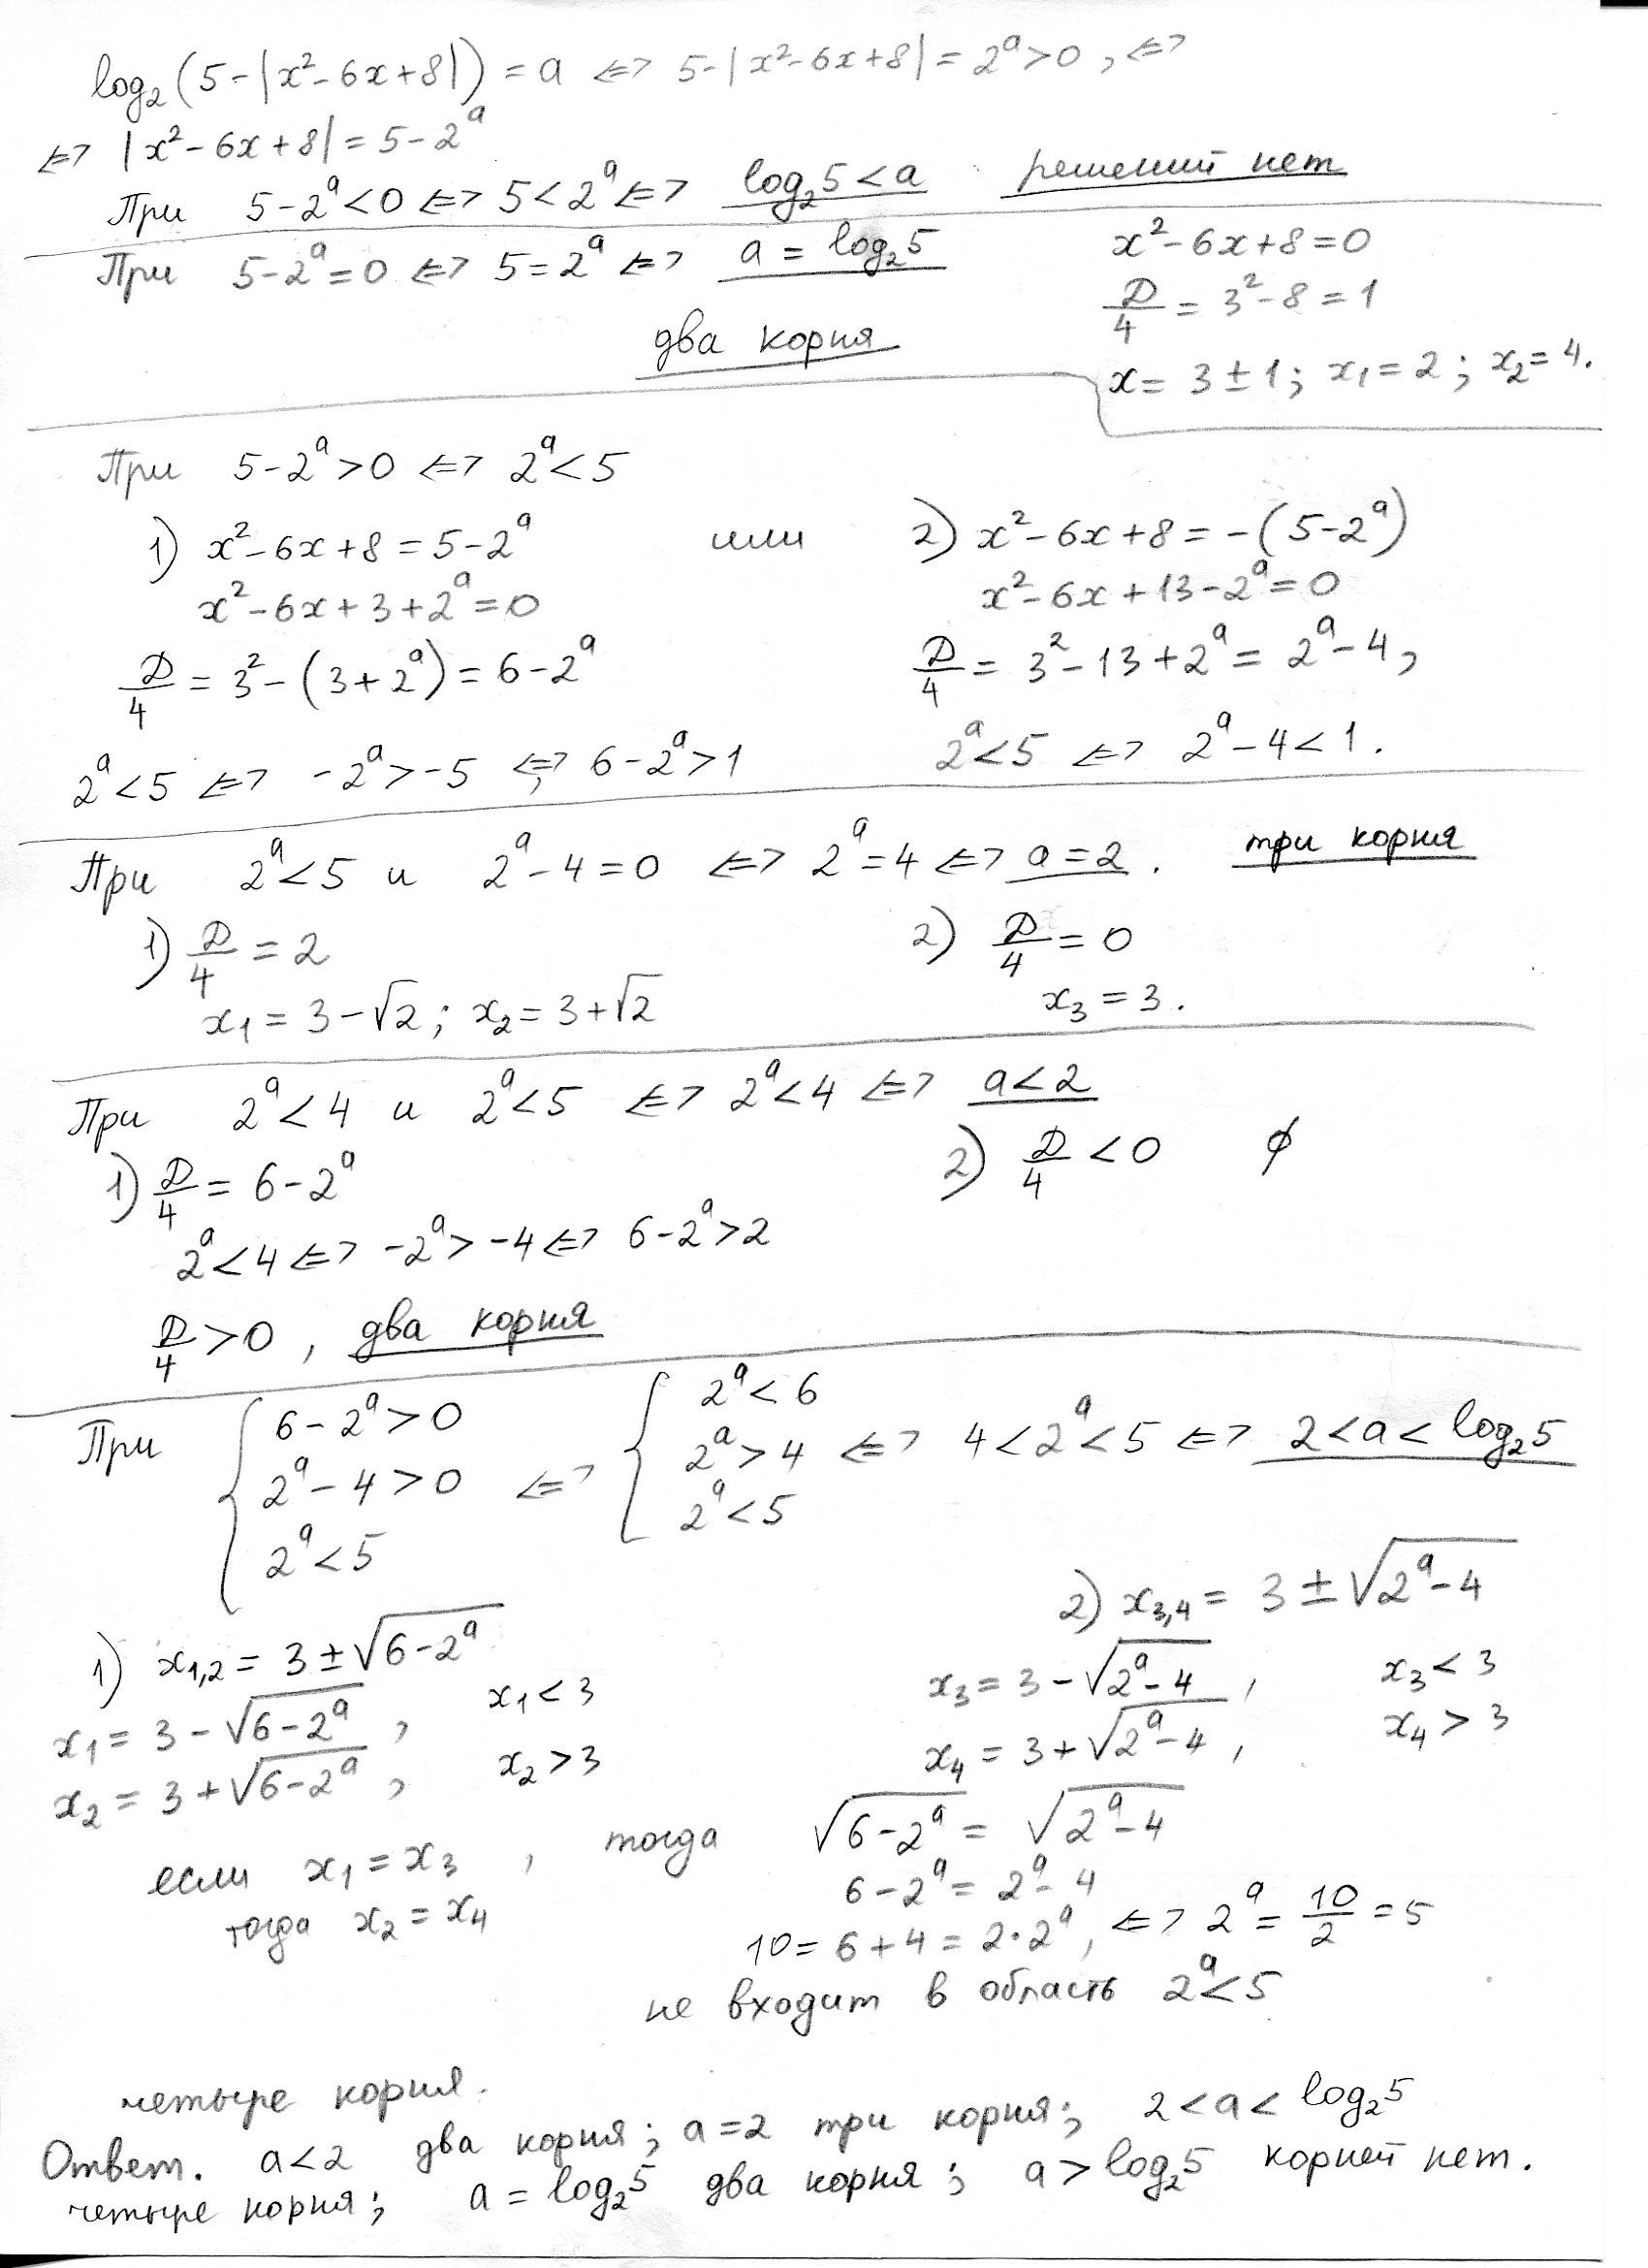 log₂(5-|x²-6x+8|) = a <=> 5-|x²-6x+8| = 2ᵃ > 0, <=>
<=> |x²-6x+8| = 5-2ᵃ
При 5-2ᵃ<0 <=> 5<2ᵃ <=> log₂5<a решений нет
При 5-2ᵃ=0 <=> 5=2ᵃ <=> a = log₂5
два корня
x²-6x+8=0
D/4 = 3²-8 = 1
x = 3±1; x₁=2; x₂=4.
При 5-2ᵃ>0 <=> 2ᵃ<5
1) x²-6x+8 = 5-2ᵃ или 2) x²-6x+8 = -(5-2ᵃ)
x²-6x+3+2ᵃ=0 x²-6x+13-2ᵃ=0
D/4 = 3²-(3+2ᵃ) = 6-2ᵃ D/4 = 3²-13+2ᵃ = 2ᵃ-4,
2ᵃ<5 <=> -2ᵃ>-5 <=>, 6-2ᵃ>1 2ᵃ<5 <=> 2ᵃ-4<1.
При 2ᵃ<5 и 2ᵃ-4=0 <=> 2ᵃ=4 <=> a=2. три корня
1) D/4 = 2 2) D/4 = 0
x₁ = 3-√2; x₂ = 3+√2 x₃ = 3.
При 2ᵃ<4 и 2ᵃ<5 <=> 2ᵃ<4 <=> a<2
1) D/4 = 6-2ᵃ 2) D/4 < 0 ∅
2ᵃ<4 <=> -2ᵃ>-4 <=> 6-2ᵃ>2
D/4 > 0, два корня
При { 6-2ᵃ>0 2ᵃ-4>0 2ᵃ<5 <=> { 2ᵃ<6 2ᵃ>4 2ᵃ<5 <=> 4<2ᵃ<5 <=> 2<a<log₂5
1) x₁,₂ = 3±√(6-2ᵃ) 2) x₃,₄ = 3±√(2ᵃ-4)
x₁ = 3-√(6-2ᵃ), x₁<3 x₃ = 3-√(2ᵃ-4), x₃<3
x₂ = 3+√(6-2ᵃ), x₂>3 x₄ = 3+√(2ᵃ-4), x₄>3
если x₁=x₃, тогда √(6-2ᵃ) = √(2ᵃ-4)
тогда x₂=x₄ 6-2ᵃ = 2ᵃ-4
10 = 6+4 = 2·2ᵃ, <=> 2ᵃ = 10/2 = 5
не входит в область 2ᵃ<5
четыре корня.
Ответ. a<2 два корня; a=2 три корня; 2<a<log₂5
четыре корня; a = log₂5 два корня; a>log₂5 корней нет.